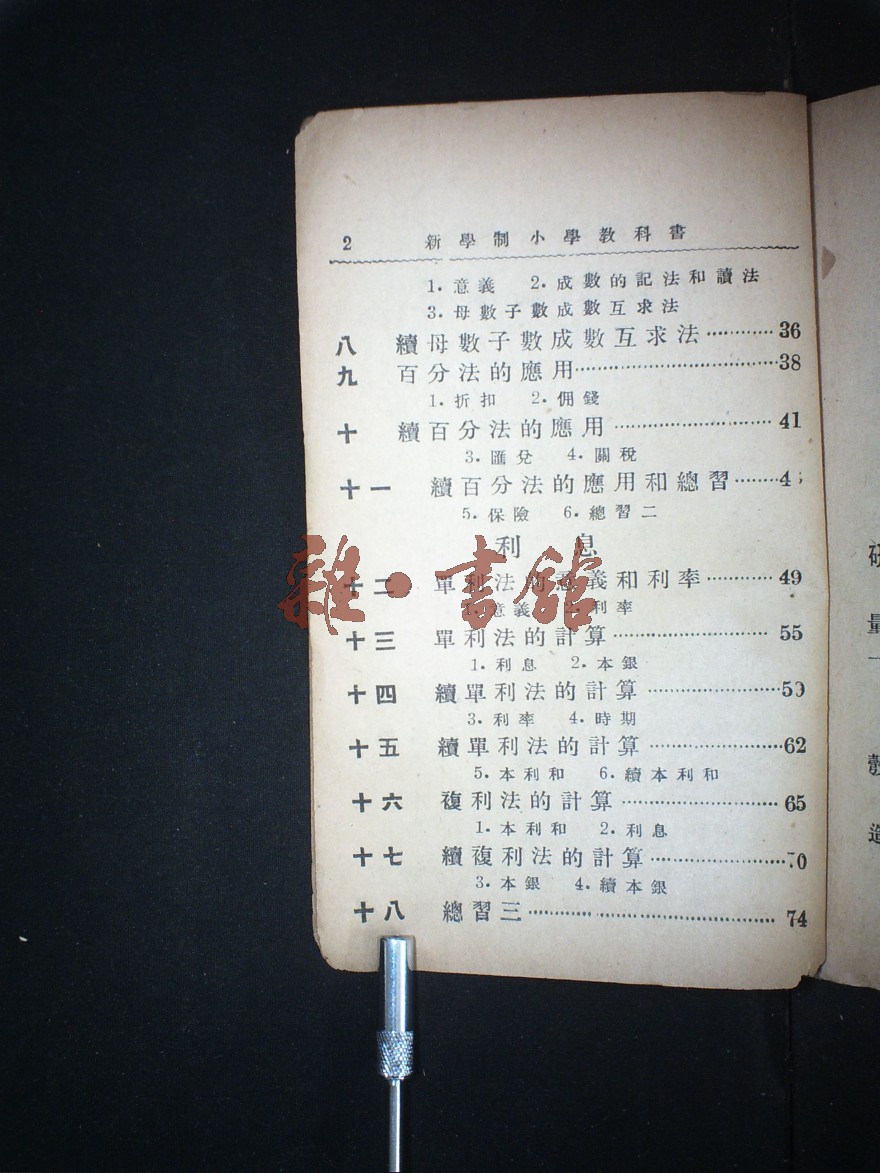 2 新學制小學教科書
1. 意義 2. 成數的記法和讀法
3. 母數子數成數互求法
八 續母數子數成數互求法…………36
九 百分法的應用…………38
1. 折扣 2. 佣錢
十 續百分法的應用…………41
3. 匯兌 4. 關稅
十一 續百分法的應用和總習………4
5. 保險 6. 總習二
利息
十二 單利法的意義和利率…………49
1. 意義 2. 利率
十三 單利法的計算…………55
1. 利息 2. 本銀
十四 續單利法的計算…………59
3. 利率 4. 時期
十五 續單利法的計算…………62
5. 本利和 6. 續本利和
十六 複利法的計算…………65
1. 本利和 2. 利息
十七 續複利法的計算…………70
3. 本銀 4. 續本銀
十八 總習三…………74
雜·書館
研
量
造